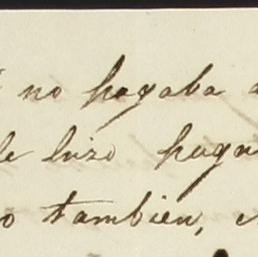 no pagaba
le hizo pagar
tambien,